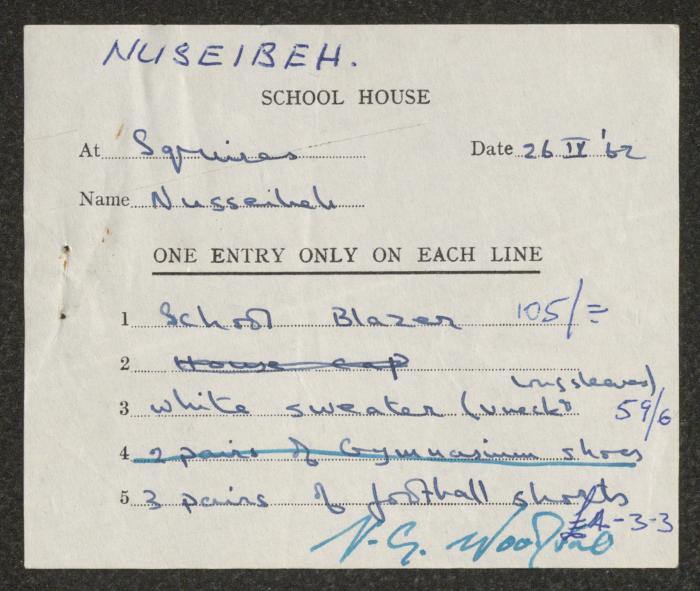 NUSEIBEH.
SCHOOL HOUSE
At Squires Date 26 IV '62
Name Nusseibeh
ONE ENTRY ONLY ON EACH LINE
1 School Blazer 105/=
2 House cap
3 white sweater (vneck & longsleeves) 59/6
4 2 pairs of Gymnasium shoes
5 3 pairs of football shorts
£4-3-3